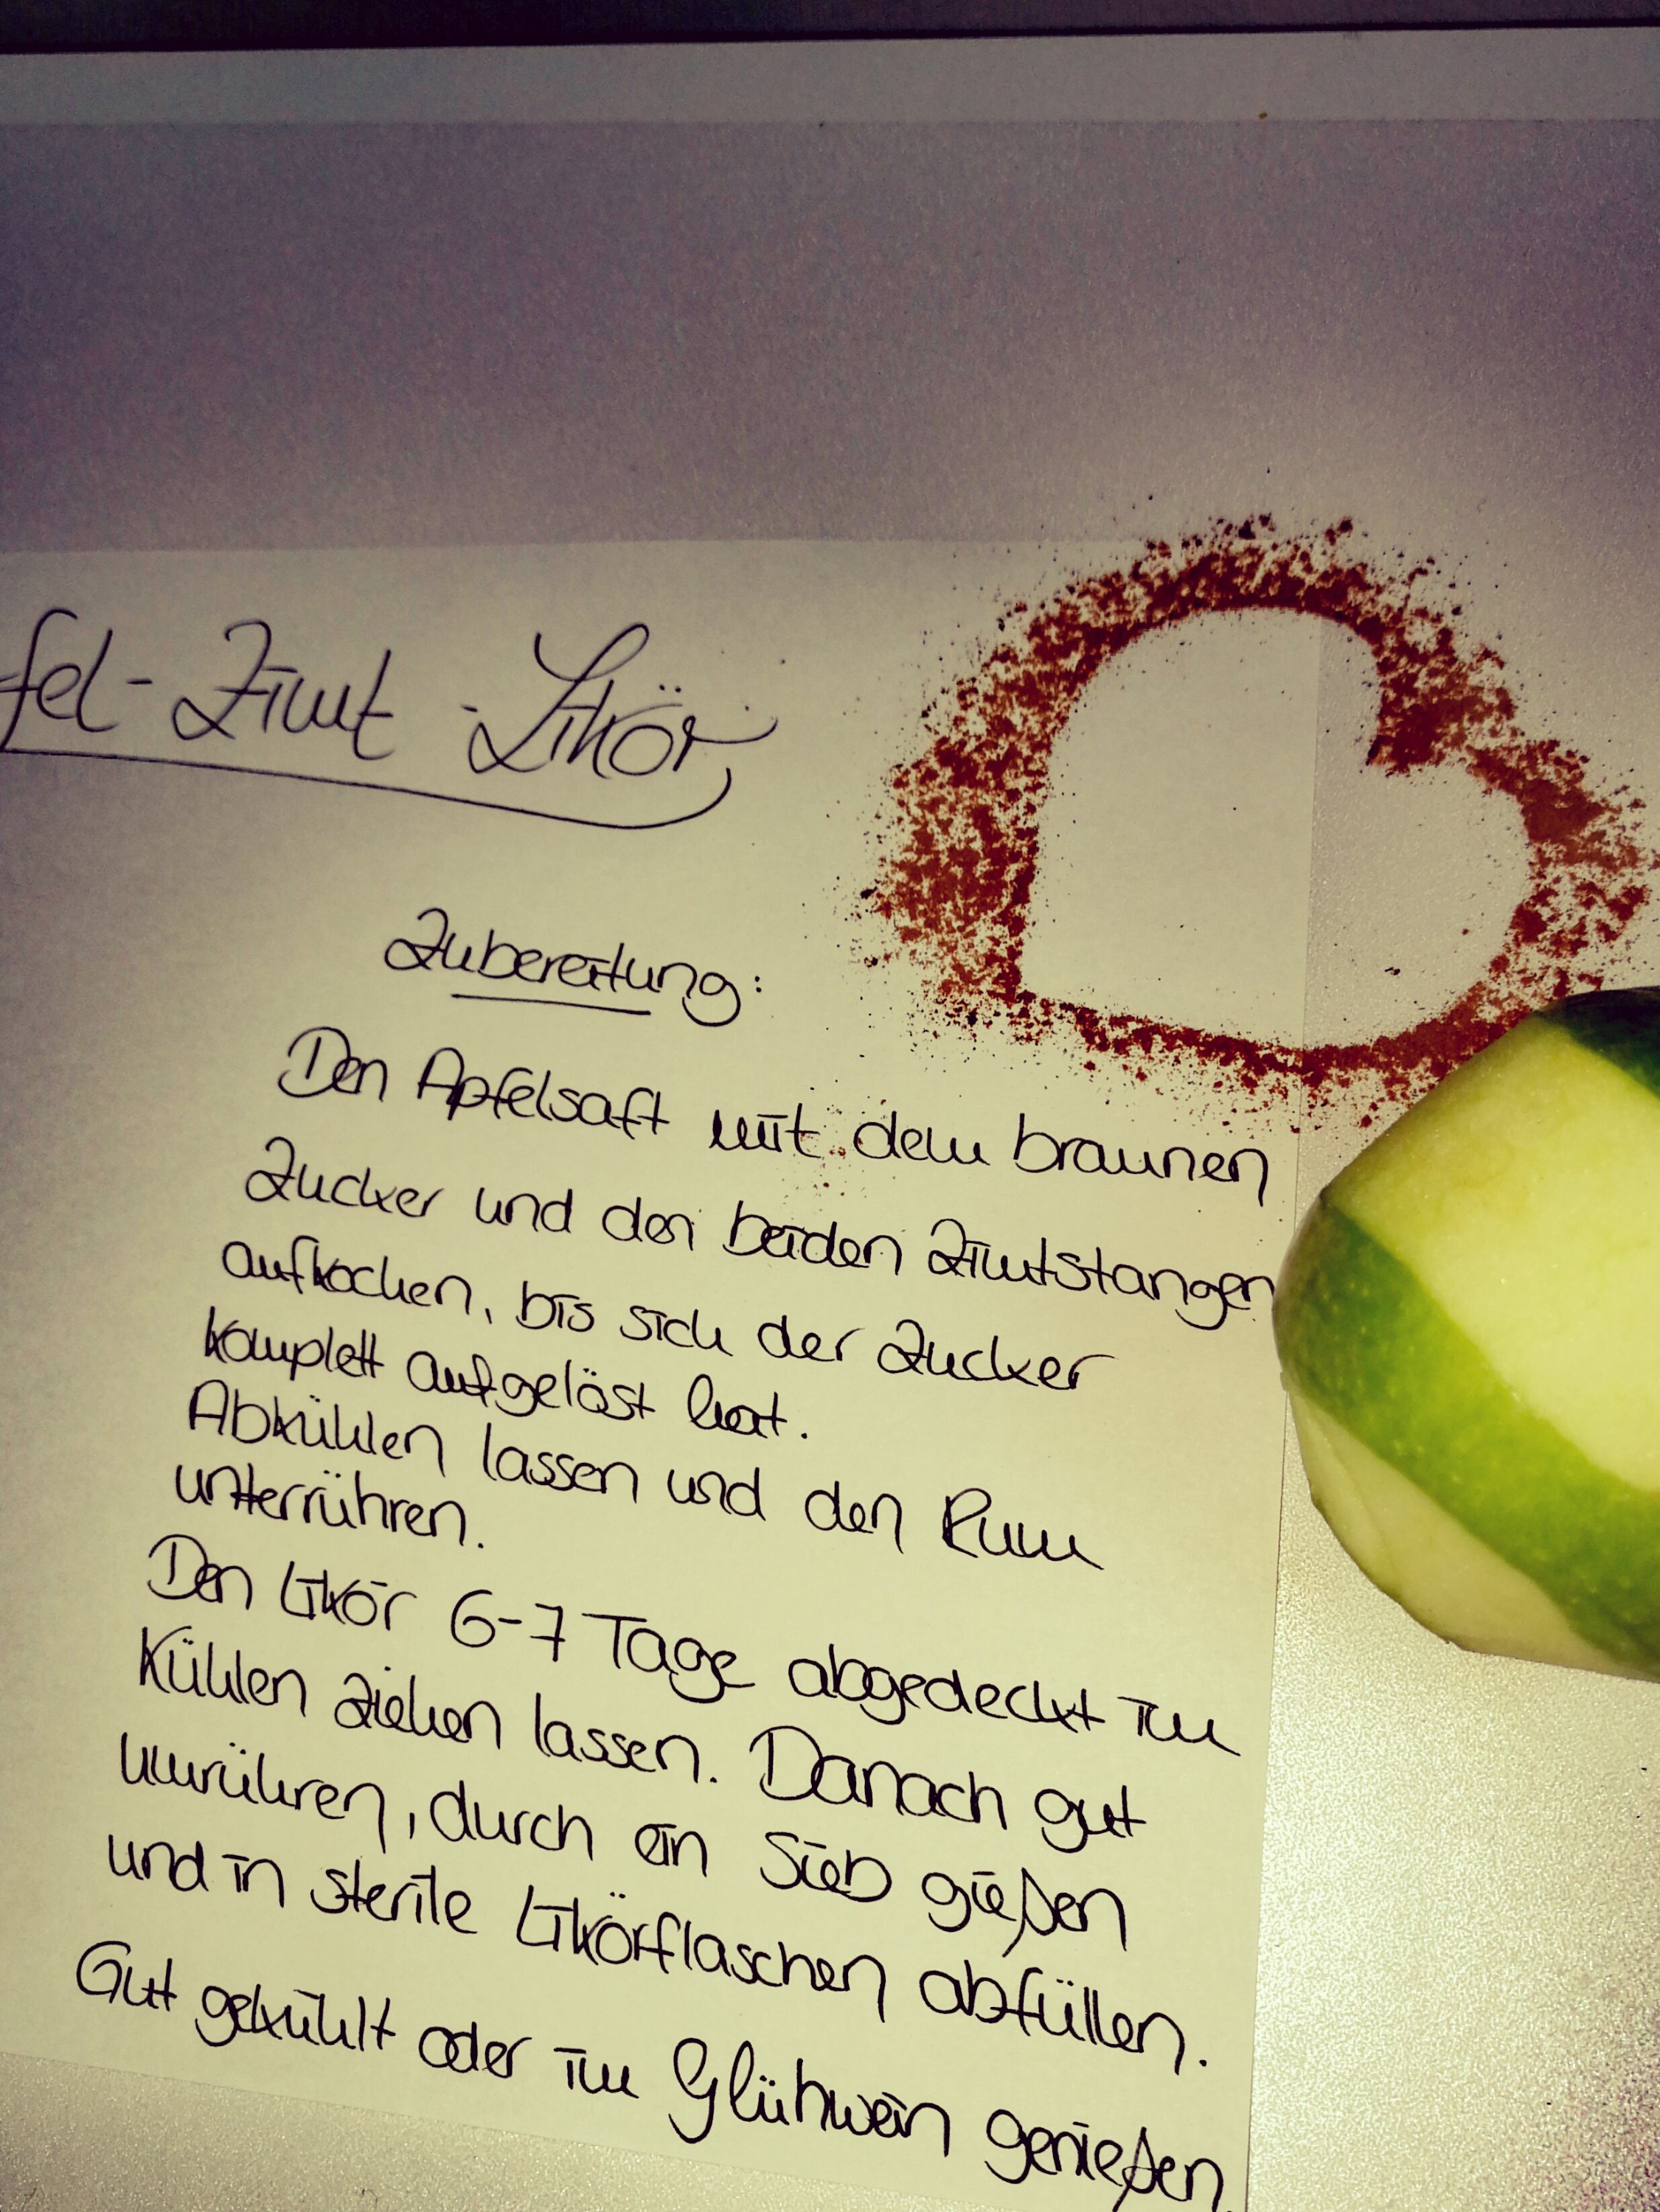 fel-Zimt-Likör
Zubereitung:
Den Apfelsaft mit dem braunen
Zucker und den beiden Zimtstangen
aufkochen, bis sich der Zucker
komplett aufgelöst hat.
Abkühlen lassen und den Rum
unterrühren.
Den Likör 6-7 Tage abgedeckt im
Kühlen ziehen lassen. Danach gut
umrühren, durch ein Sieb gießen
und in sterile Likörflaschen abfüllen.
Gut gekühlt oder im Glühwein genießen.